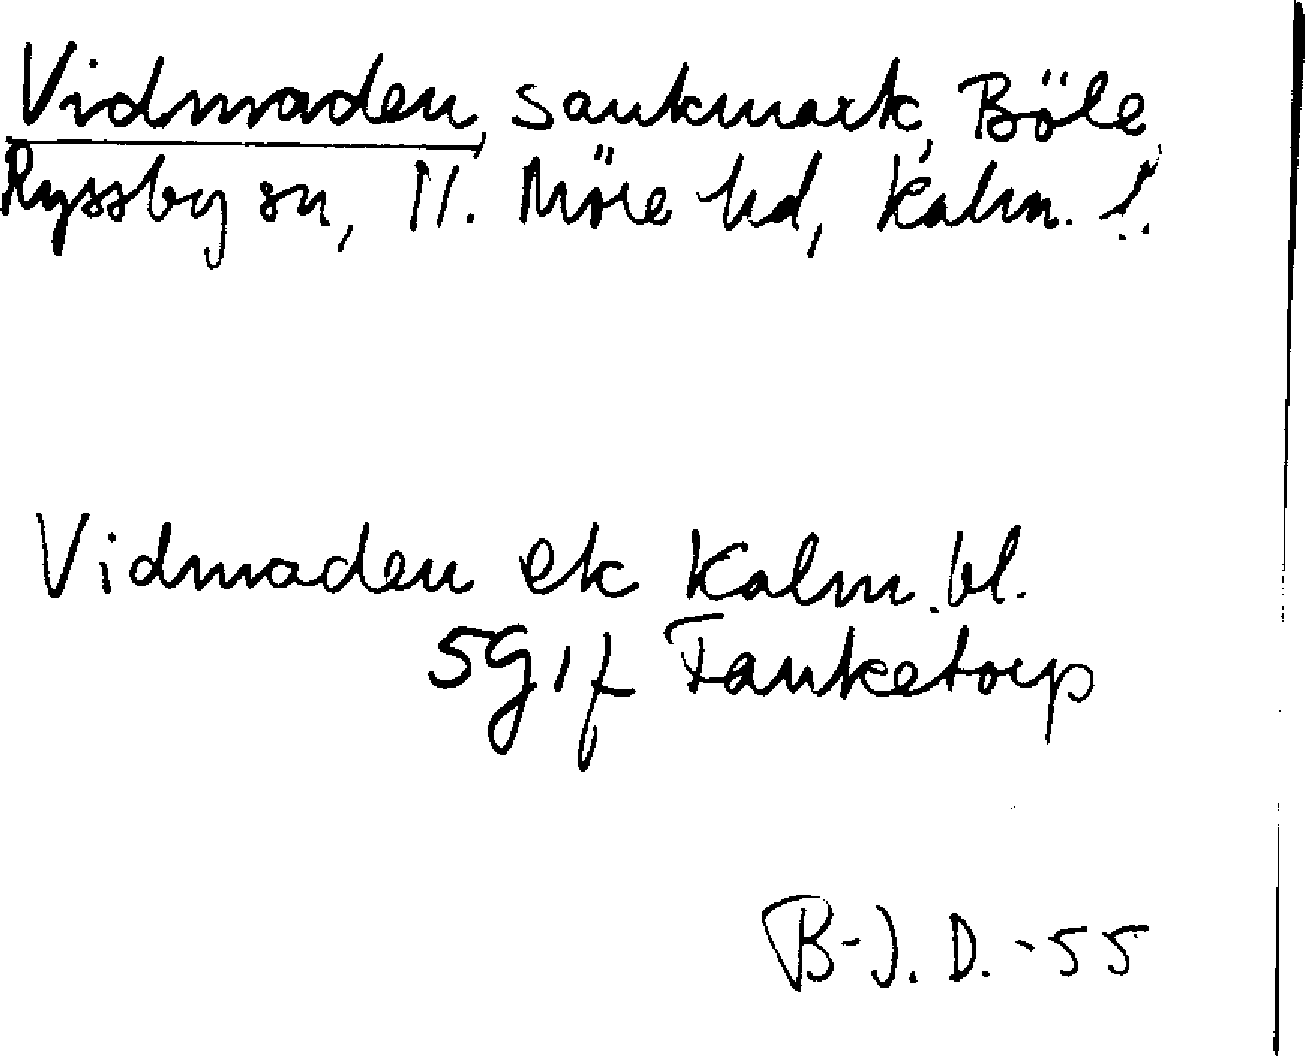 Vidmaden, sankmark, Böle,
Ryssby sn, N. Möre hd, Kalm. l.
Vidmaden ek Kalm. bl.
5G1f Fanketorp
B-J. D. -55